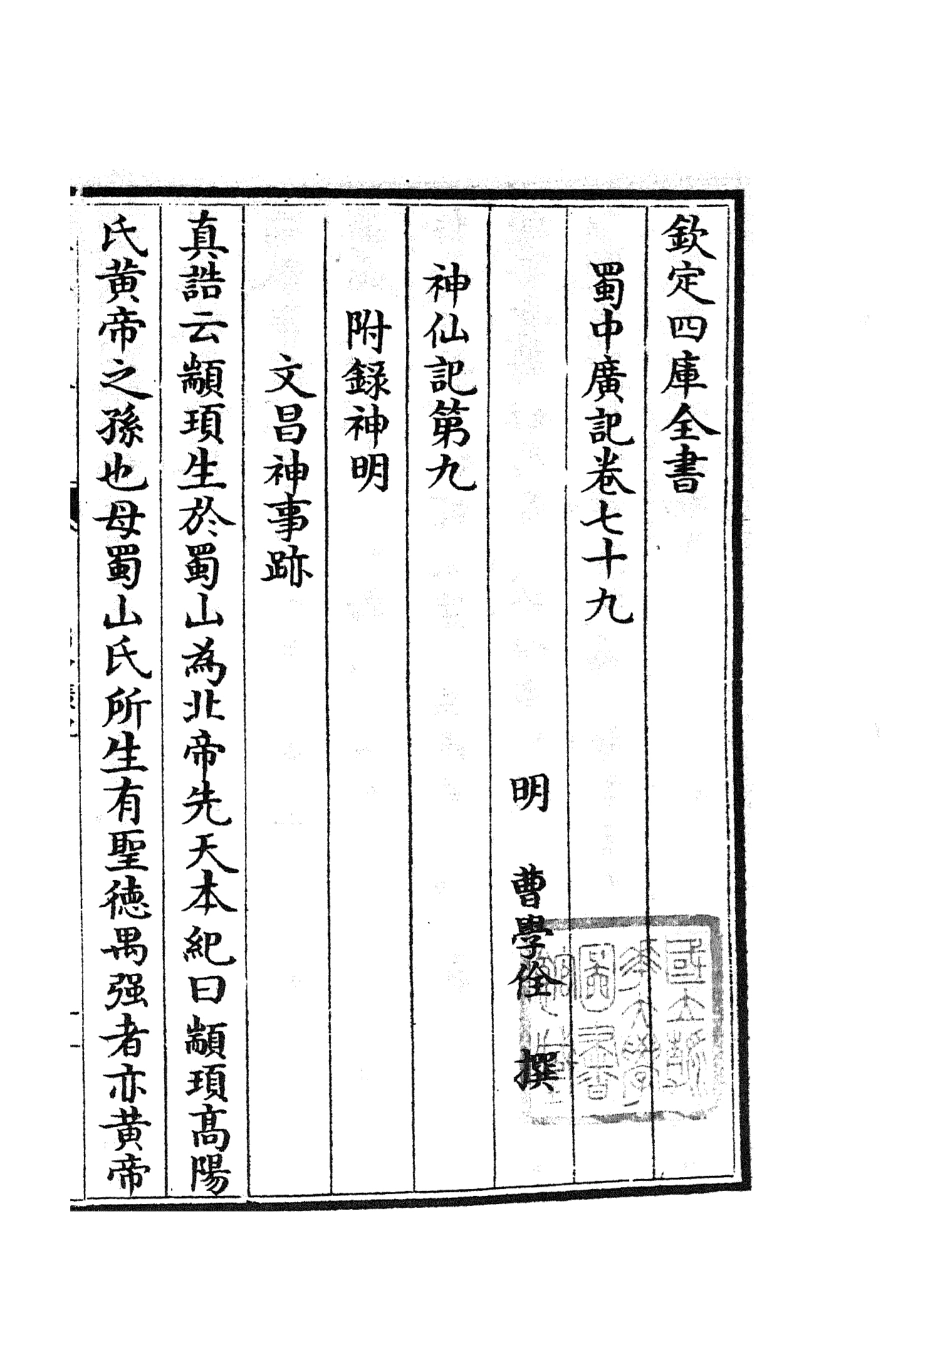 欽定四庫全書
蜀中廣記卷七十九
明 曹學佺 撰
神仙記第九
附錄神明
文昌神事跡
真誥云顓頊生於蜀山為北帝先天本紀曰顓頊高陽
氏黄帝之孫也母蜀山氏所生有聖德禺强者亦黄帝